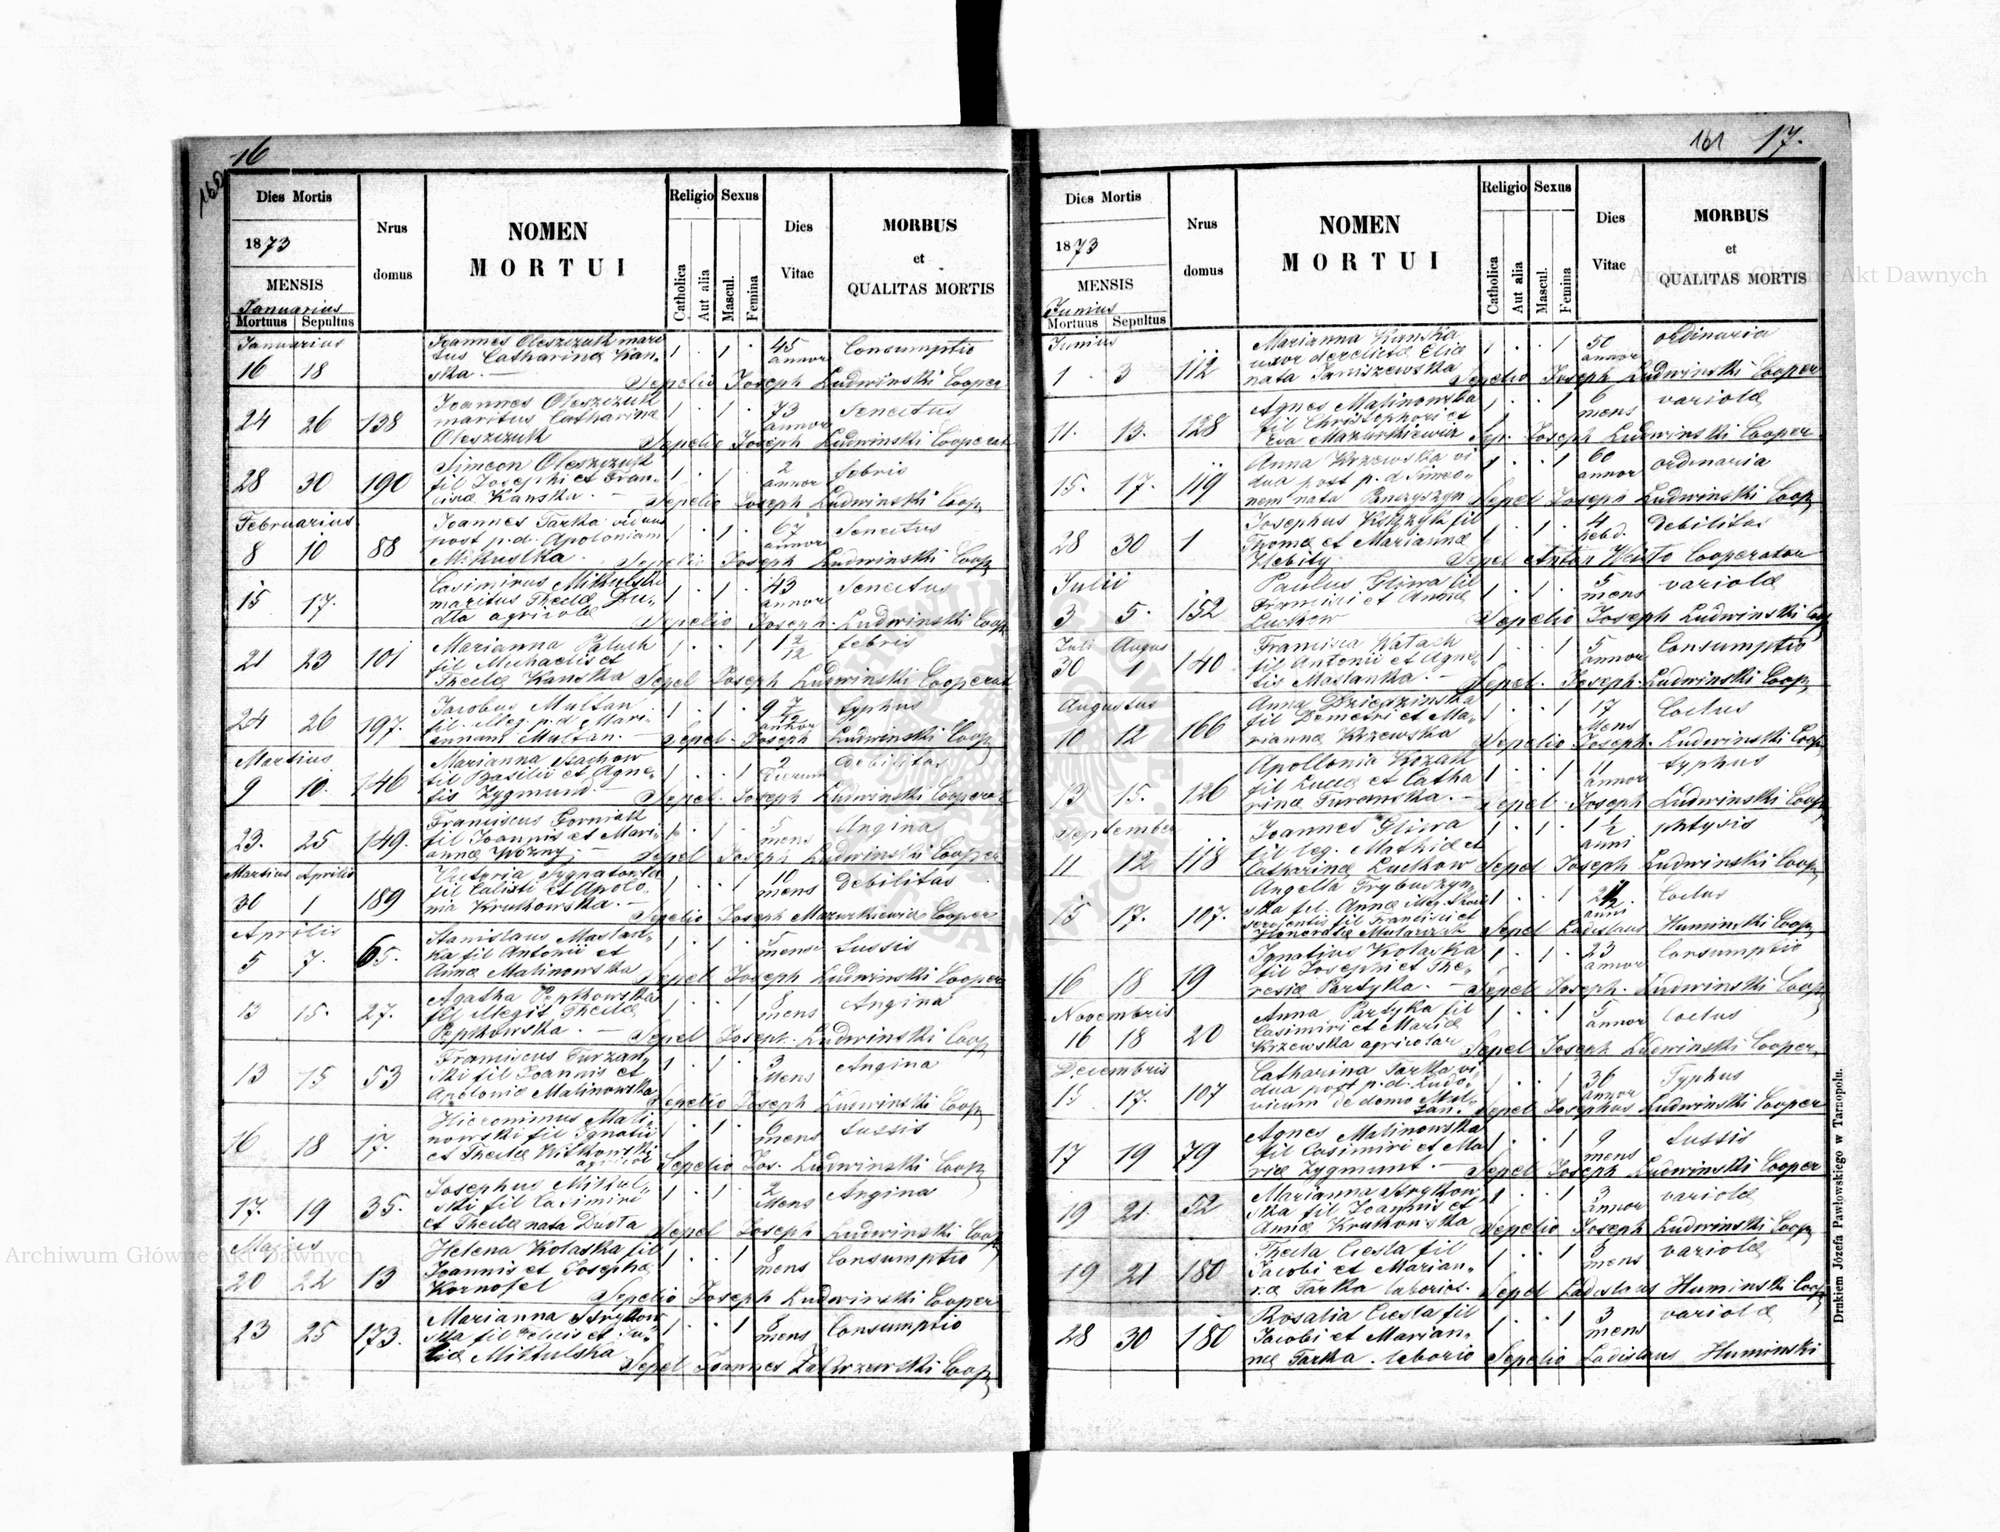 16
160
Dies Mortis
1873
MENSIS
Januarius
Mortuus Sepultus
Nrus
domus
NOMEN
MORTUI
Religio
Catholica
Aut alia
Sexus
Mascul.
Femina
Dies
Vitae
MORBUS
et
QUALITAS MORTIS
Januarius
16 18
Joannes Oleszczuk mari
tus Catharinæ Kan-
ska. —
1 . 1 . 45 annor Consumptio
Sepelio Joseph Ludwinski Cooper
24 26 138
Joannes Oleszczuk
maritus Catharinæ
Oleszczuk
1 . 1 . 73 annor Senectus
Sepelio Joseph Ludwinski Cooperat
28 30 190
Simeon Oleszczuk
fil Josephi et Fran-
ciscæ Kanska. —
1 . 1 . 2 annor febris
Sepelio Joseph Ludwinski Coop
Februarius
8 10 88
Joannes Tarka viduus
post p.d. Apoloniam
Mikulska.
. 1 . 67 annor Senectus
Sepelio Joseph Ludwinski Coop
15 17.
Casimirus Mikulski
maritus Theclæ Du-
dta agricola
1 . 1 . 43 annor Senectus
Sepelio Joseph. Ludwinski Coop
21 23 101
Marianna Paluch
fil Michaelis et
Theclæ Kanska
1 . . 1 1 2/12 febris
Sepel Joseph Ludwinski Cooperat
24 26 197.
Jacobus Multan
fil. illeg. p.d Mari-
annam Multan. —
1 . 1 . 9 annor typhus
Sepel. Joseph Ludwinski Coop
Martius
9 10. 146
Marianna Stachow
fil Basilii et Agne-
tis Zygmund. —
1 . . 1 2 Dierum Debilitas
Sepel. Joseph Ludwinski Cooperat
23. 25 149.
Franciscus Gorniak
fil Joannis et Mari-
annæ Wozny. —
1 . 1 . 5 mens Angina
Sepel Joseph Ludwinski Cooper
Martius Aprilis
30 1 189
Victoria
fil Calisti et Apolo-
nia Krukowska. —
1 . . 1 10 mens Debilitas
Sepelio Joseph Mazurkiewicz Cooper
Aprilis
5 7. 65.
Stanislaus Maslan-
ka fil Antonii et
Annæ Malinowska
1 . 1 . 5 mens Tussis
Sepel Joseph Ludwinski Cooper
13 15. 27.
Agatha Pepkowska
fil illegit Theclæ
Pepkowska. —
1 . . 1 8 mens Angina
Sepel Joseph. Ludwinski Coop
13 15 53
Franciscus Turzan-
ski fil Joannis et
Apoloniæ Malinowska
1 . 1 . 3 Mens Angina
Sepelio Joseph Ludwinski Coop
16 18 17.
Hieronimus Mali-
nowski fil Ignatii
et Theclæ Witkowski
agricol
1 . 1 . 6 mens Tussis
Sepelio Jos. Ludwinski Coop
17. 19 35.
Josephus Mikul-
ski fil Casimiri
et Theclæ nata Dudta
1 . 1 . 2 Mens Angina
Sepel Joseph Ludwinski Coop
Majus
20 22 13
Helena Kolaska fil
Joannis et Josephæ
Kornofel
1 . . 1 8 mens Consumptio
Sepelio Joseph Ludwinski Cooper
23 25 173.
Marianna Strykow
ska fil Felicis et Ju-
liæ Mikulska
1 . . 1 8 mens Consumptio
Sepel Joannes Zakrzewski Coop
161 17.
Dies Mortis
1873
MENSIS
Junius
Mortuus Sepultus
Nrus
domus
NOMEN
MORTUI
Religio
Catholica
Aut alia
Sexus
Mascul.
Femina
Dies
Vitae
MORBUS
et
QUALITAS MORTIS
Junius
1 . 3 112
Marianna Kanska
uxor derelicta Eliæ
nata Janiszewska
1 . . 1 50 annor ordinaria
Sepelio Joseph Ludwinski Cooper
11. 13. 128
Agnes Malinowska
fil Christophori et
Eva Mazurkiewicz
1 . . 1 6 mens variolæ
Sep. Joseph Ludwinski Cooper
15. 17. 119
Anna Krzewska vi
dua post p.d Simeo-
nem nata
1 . . 1 60 annor ordinaria
Sepel Joseph Ludwinski Coop
28 30 1
Josephus Kskzyk fil
Thomæ et Mariannæ
Hebity
1 . 1 . 4 hebd. Debilitas
Sepel Anton Cooperator
Julii
3 5. 152
Paulus Gliwa fil
Francisci et Annæ
Luckow
1 . 1 . 5 mens variolæ
Sepelio Joseph Ludwinski Coop
Juli Augus
30 1 140
Francisca Watach
fil Antonii et Agne-
tis Maslanka. —
1 . . 1 5 annor Consumptio
Sepel. Joseph. Ludwinski Coop
Augustus
10 12 166
Anna Dziedzinska
fil Demetri et Ma-
rianna Krzewska
1 . . 1 17 Mens Coctus
Sepelio Joseph. Ludwinski Coop
13 15. 126
Apollonia Kozak
fil Lucæ et Catha
rinæ Turanska. —
1 . . 1 11 annor typhus
Sepel. Joseph Ludwinski Coop
September
11 12 118
Joannes Gliwa
fil leg. Mathiæ et
Catharinæ Luckow
1 . 1 . 1 1/2 anni phtysis
Sepel Joseph Ludwinski Coop
15 17. 107.
Angella Grybuszyn-
ska fil. Annæ
servientis fil Francisci et
Honoratæ Mularczyk
1 . . 1 2 1/2 anni Coctus
Sepel Ladislaus Huminski Coop
16 18 19
Ignatius Kolaska
fil Josephi et The-
resiæ Partyka. —
1 . 1 . 23 annor Consumptio
Sepel Joseph. Ludwinski Coop
Novembris
16 18 20
Anna Partyka fil
Casimiri et Mariæ
Krzewska agricolar
1 . . 1 5 annor Coctus
Sepel Joseph Ludwinski Cooper
Decembris
15 17. 107
Catharina Tarka vi
dua post p.d. Ludo-
vicum de domo Mul-
tan.
1 . . 1 36 annor Typhus
Sepel Josephus Ludwinski Cooper
17 19 79
Agnes Malinowska
fil Casimiri et Ma
riæ Zygmunt. —
1 . . 1 9 mens Tussis
Sepel Joseph Ludwinski Cooper
19 21. 52
Marianna Strykow
ska fil Joannis et
Annæ Krukowska
1 . . 1 3 annor variolæ
Sepelio Joseph Ludwinski Coop
19 21 180
Thecla Ciesla fil
Jacobi et Marian-
næ Tarka laborios.
1 . . 1 8 mens variolæ
Sepel Ladislaus Huminski Coop
28 30 180
Rosalia Ciesla fil
Jacobi et Marian-
næ Tarka. laborio
1 . . 1 3 mens variolæ
Sepelio Ladislaus Huminski
Drukiem Józefa Pawłowskiego w Tarnopolu.
Archiwum Główne Akt Dawnych
Archiwum Główne Akt Dawnych
ARCHIWUM GŁÓWNE AKT DAWNYCH